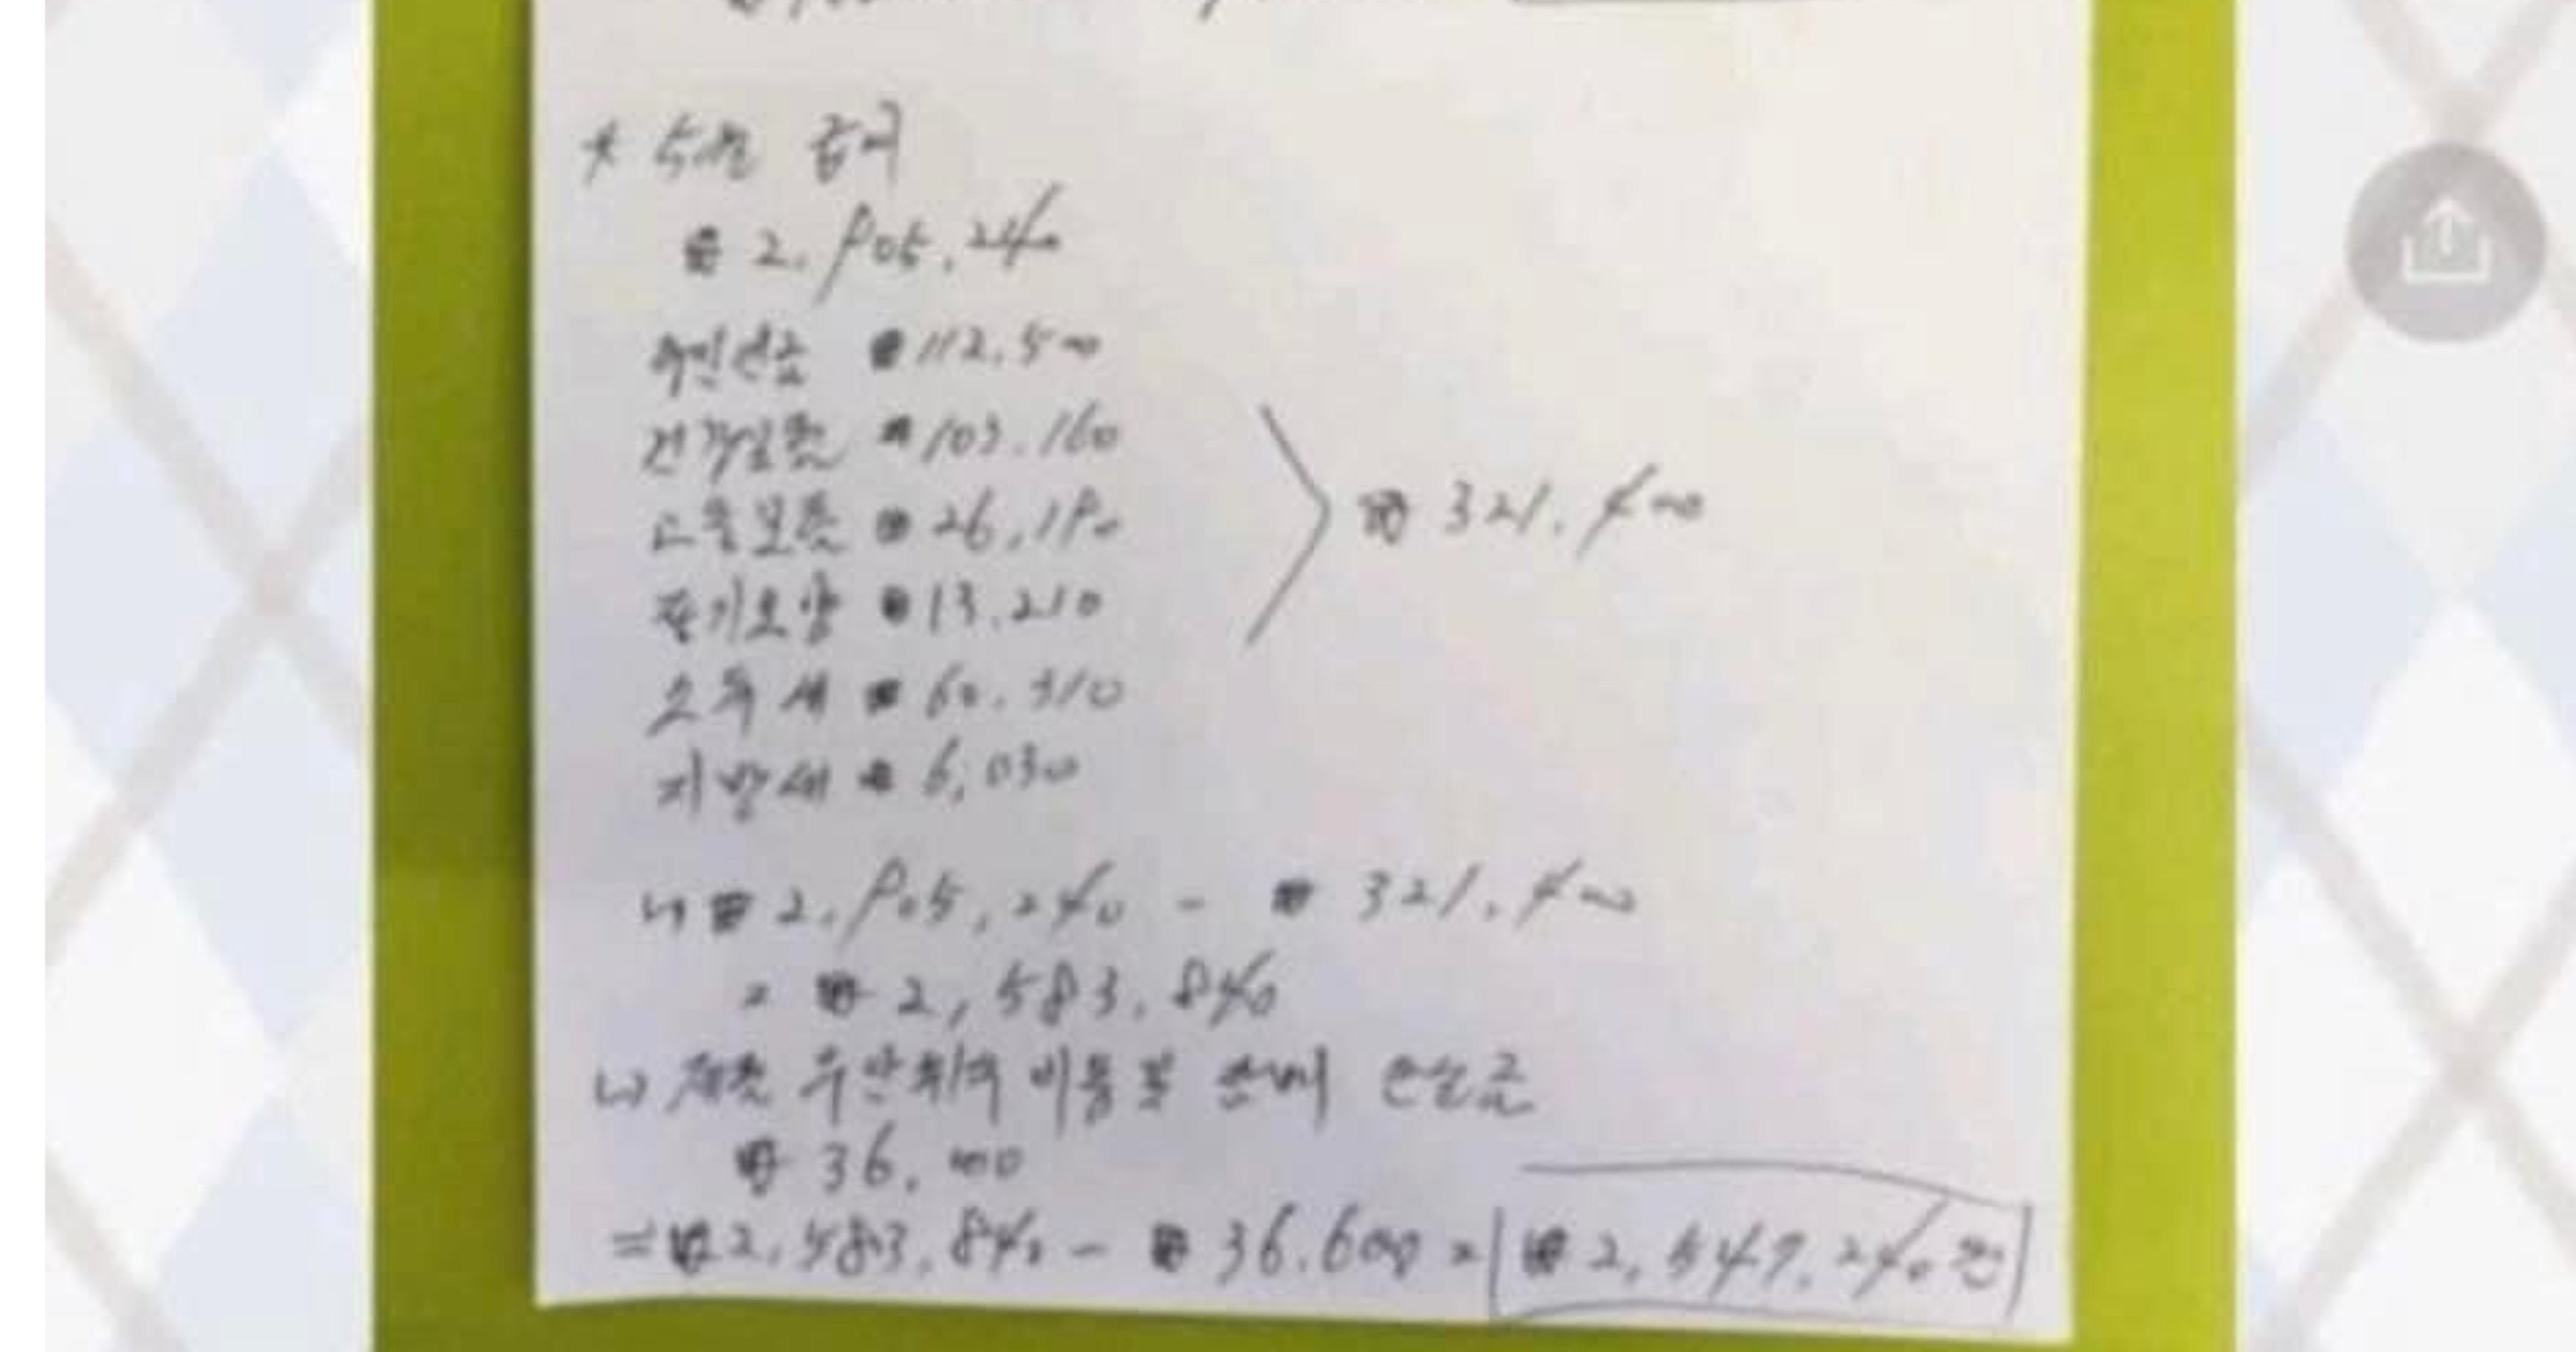 * 수령 급여
₩ 2,905,240
국민연금 ₩ 112,500
건강보험 ₩ 103,160
고용보험 ₩ 26,190
장기요양 ₩ 13,210
소득세 ₩ 60,310
지방세 ₩ 6,030
₩ 321,400
↳ ₩ 2,905,240 - ₩ 321,400
= ₩ 2,583,840
↳ 무단취식 비용 및 판매 손실금
₩ 36,600
= ₩ 2,583,840 - ₩ 36,600 = ₩ 2,547,240원